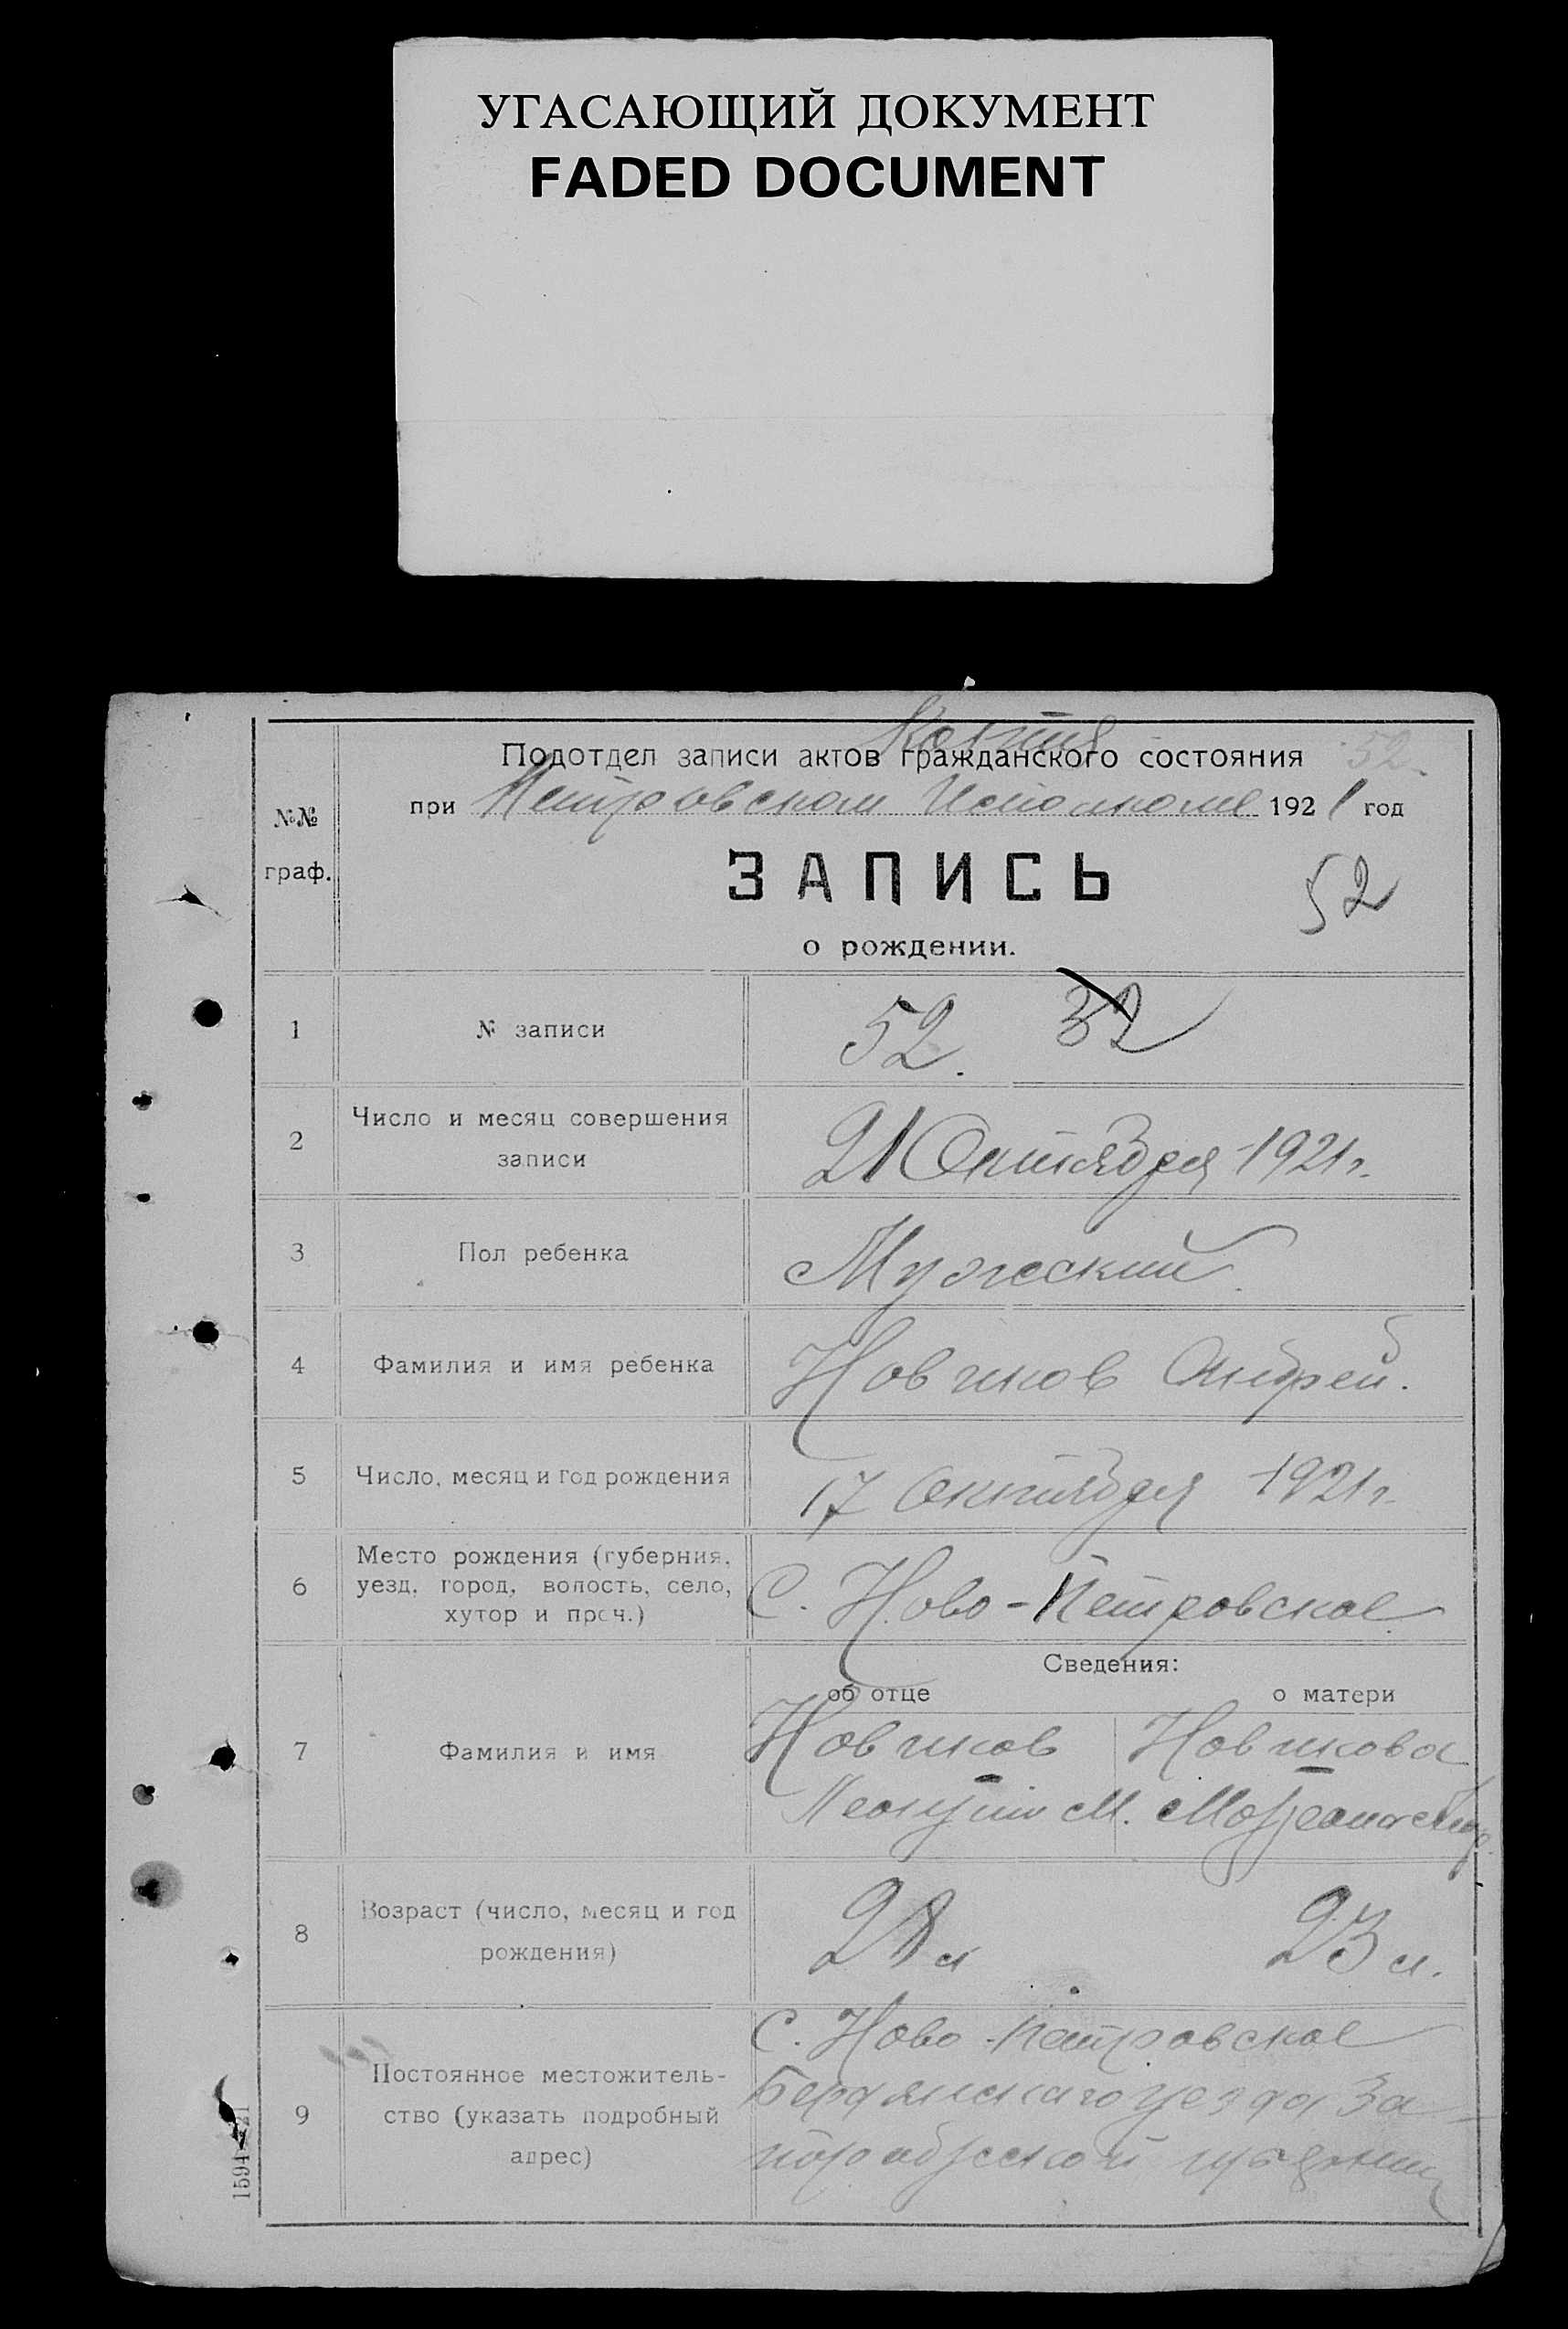 УГАСАЮЩИЙ ДОКУМЕНТ
FADED DOCUMENT
Копия
Подотдел записи актов гражданского состояния 52.
при Петровском Исполкоме 1921 год
№№
граф.
ЗАПИСЬ
52
о рождении.
1 № записи 52. 32
2 Число и месяц совершения
записи
21 Октября 1921 г.
3 Пол ребенка Мужеский
4 Фамилия и имя ребенка Новиков Андрей.
5 Число, месяц и год рождения 17 Октября 1921 г.
6 Место рождения (губерния,
уезд, город, волость, село,
хутор и проч.)
С. Ново-Петровское
Сведения:
об отце о матери
7 Фамилия и имя
Новиков Новикова
М.
8 Возраст (число, месяц и год
рождения)
28 л 23 л.
9 Постоянное местожитель-
ство (указать подробный
адрес)
С. Ново-Петровское
Бердянскаго уезда За
порожской губернии
1594—21